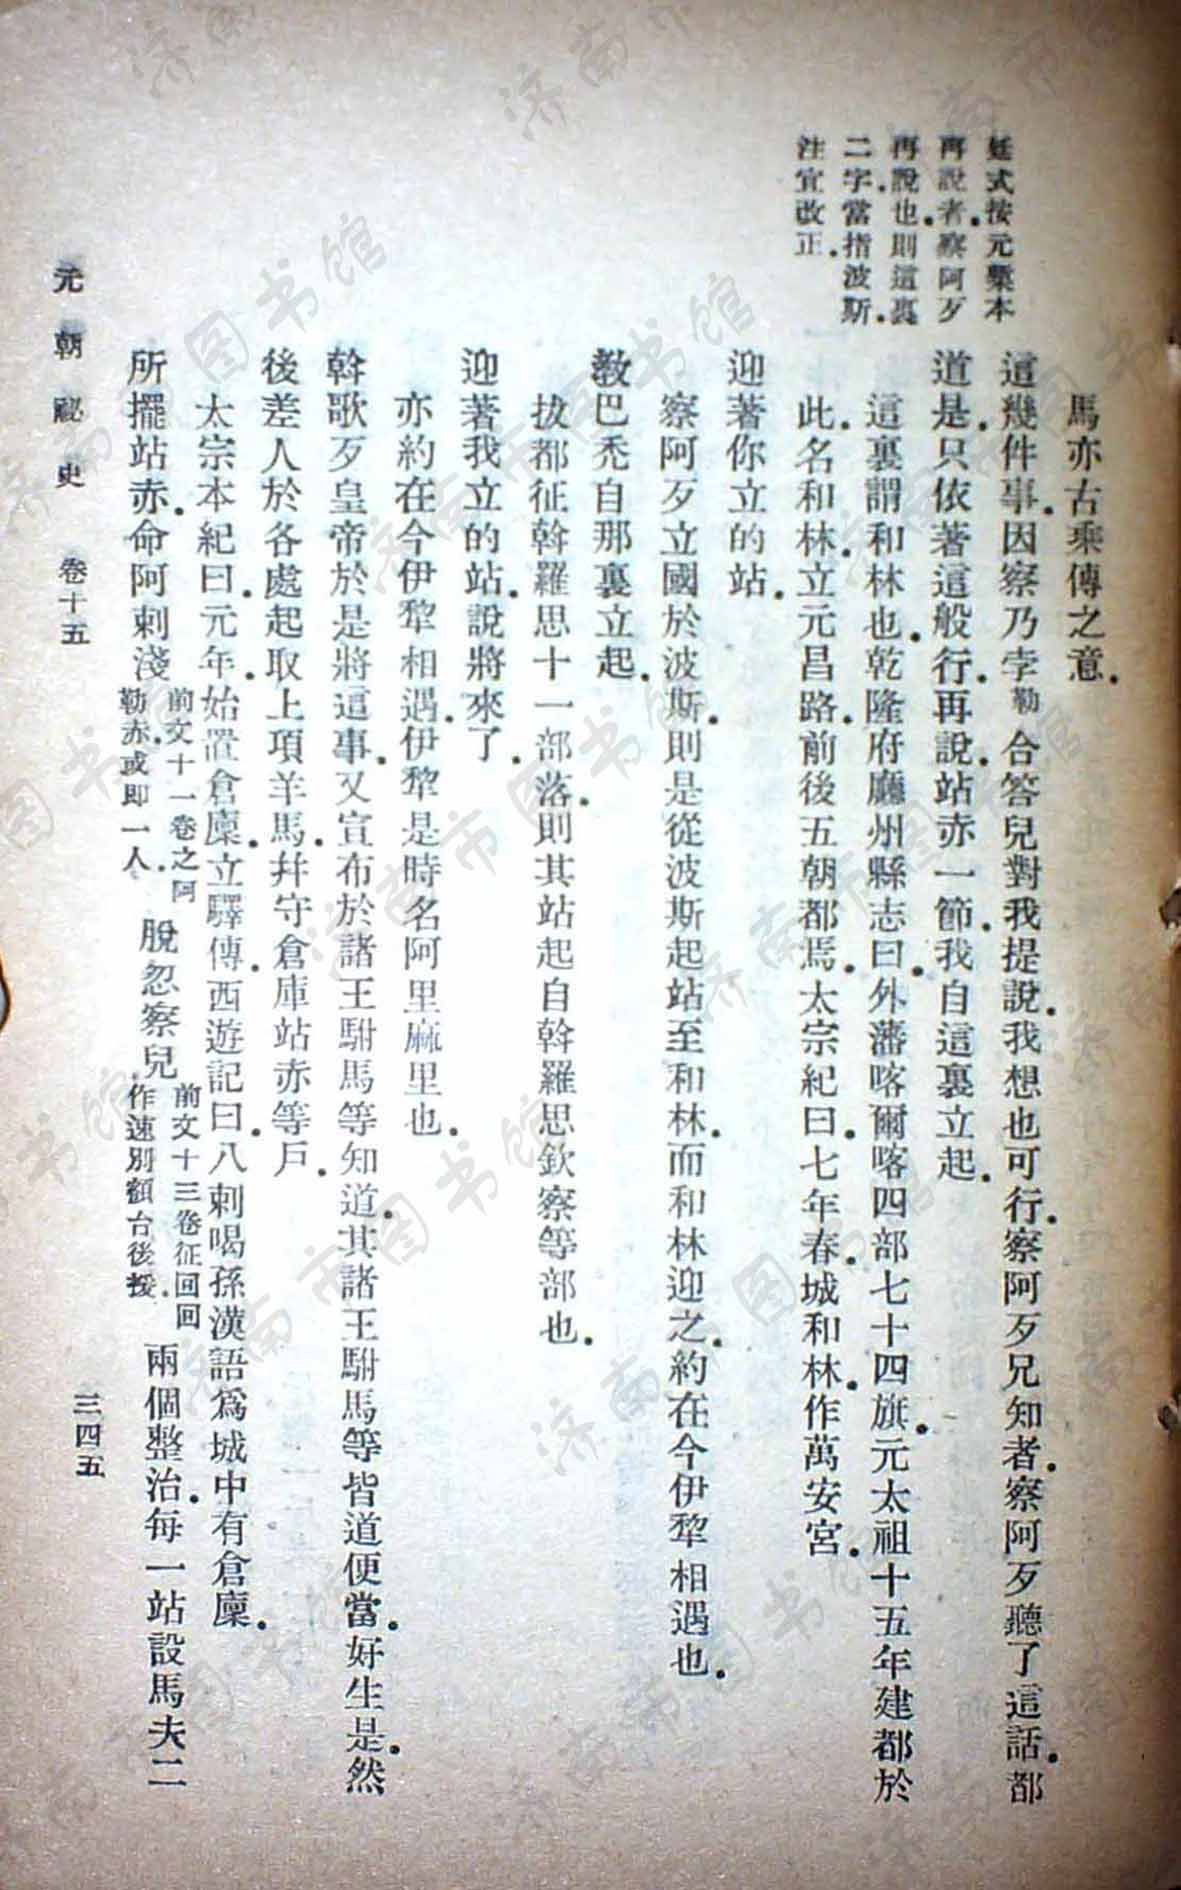 廷式按元槧本
再說者察阿歹
再說也則這裏
二字當指波斯
注宜改正
馬亦古乘傳之意
這幾件事因察乃孛勒合答兒對我提說我想也可行察阿歹兄知者察阿歹聽了這話都
道是只依著這般行再說站赤一節我自這裏立起
這裏謂和林也乾隆府廳州縣志曰外藩喀爾喀四部七十四旗元太祖十五年建都於
此名和林立元昌路前後五朝都焉太宗紀曰七年春城和林作萬安宮
迎著你立的站
察阿歹立國於波斯則是從波斯起站至和林而和林迎之約在今伊犂相遇也
教巴禿自那裏立起
拔都征斡羅思十一部落則其站起自斡羅思欽察等部也
迎著我立的站說將來了
亦約在今伊犂相遇伊犂是時名阿里麻里也
斡歌歹皇帝於是將這事又宣布於諸王駙馬等知道其諸王駙馬等皆道便當好生是然
後差人於各處起取上項羊馬幷守倉庫站赤等戶
太宗本紀曰元年始置倉廩立驛傳西遊記曰八剌喝孫漢語爲城中有倉廩
所擺站赤命阿剌淺前文十一卷之阿勒赤或即一人脫忽察兒前文十三卷征回回作速別額台後援兩個整治每一站設馬夫二
元朝祕史 卷十五 三四五
濟南市图书馆